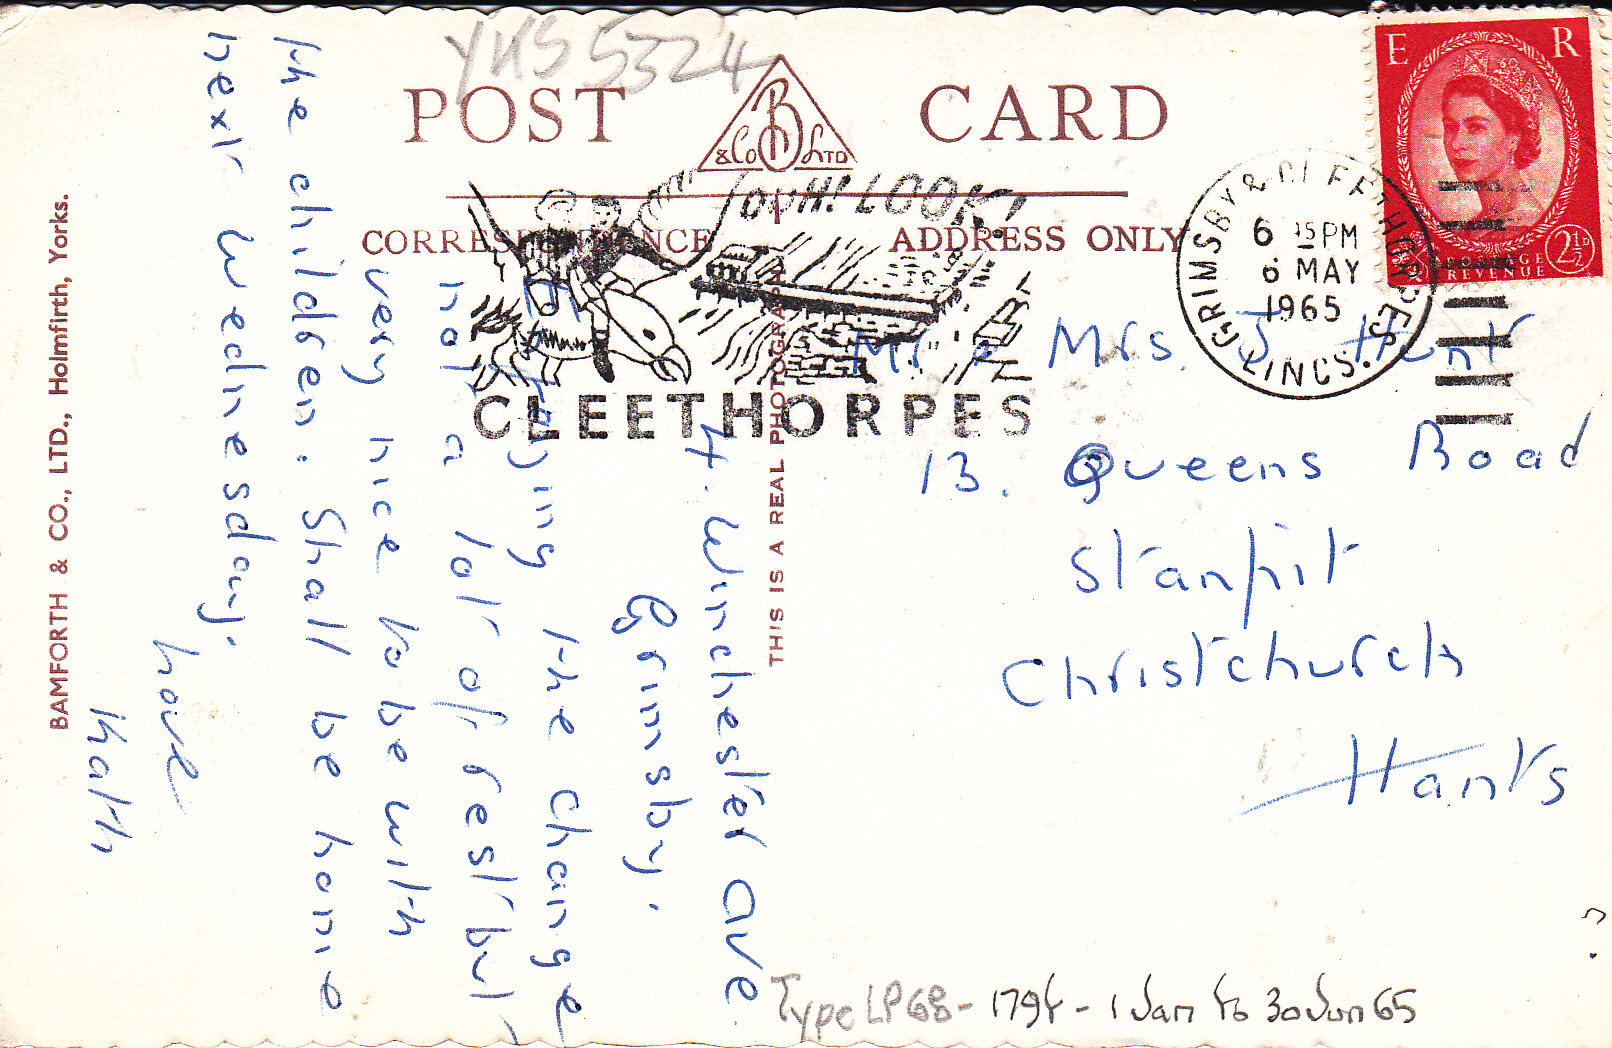 YHS 5324
POST CARD
B
& Co LTD
OOH! LOOK!
CORRESPONDENCE
ADDRESS ONLY
CLEETHORPES
GRIMSBY & CLEETHORPES
6 15 PM
6 MAY
1965
LINCS.
E R
POSTAGE
REVENUE
2½D
Mr & Mrs. J Hunt
13. Queens Road
Stanpit
Christchurch
Hants
4. Winchester Ave
Grimsby.
Enjoying the change
not a lot of rest but
very nice to be with
the children. Shall be home
next Wednesday.
Love
Kath
BAMFORTH & CO., LTD., Holmfirth, Yorks.
THIS IS A REAL PHOTOGRAPH
Type LP68 - 1794 - 1 Jan to 30 Jun 65
?